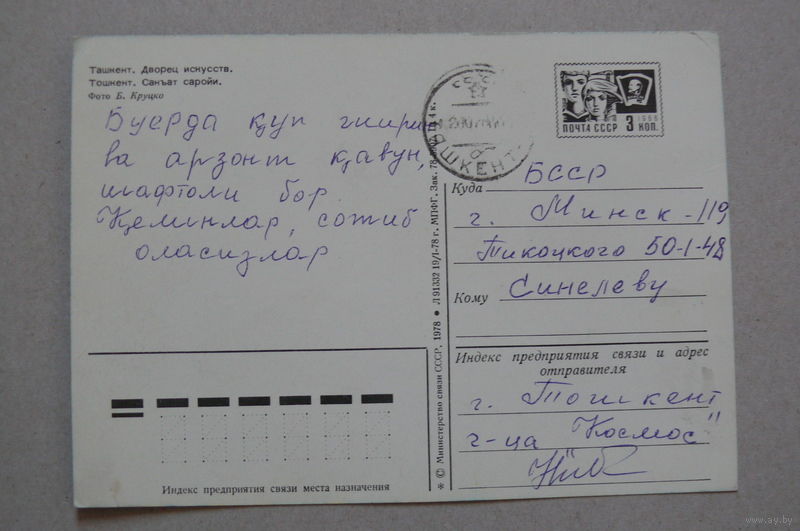 Ташкент. Дворец искусств.
Тошкент. Санъат саройи.
Фото Б. Круцко
Буерда куп ширин
ва арзонт қавун,
шафтоли бор.
Келинлар, сотиб
оласизлар
* © Министерство связи СССР, 1978 • Л 91332 19/I-78 г. МПФГ. Зак. 78 4 к.
ПОЧТА СССР 3 КОП.
1966
Куда БССР
г. Минск-119
Пикоцкого 50-1-48
Кому Синелеву
Индекс предприятия связи и адрес
отправителя
г. Тошкент
г-ца "Космос"
Индекс предприятия связи места назначения
www.ay.by